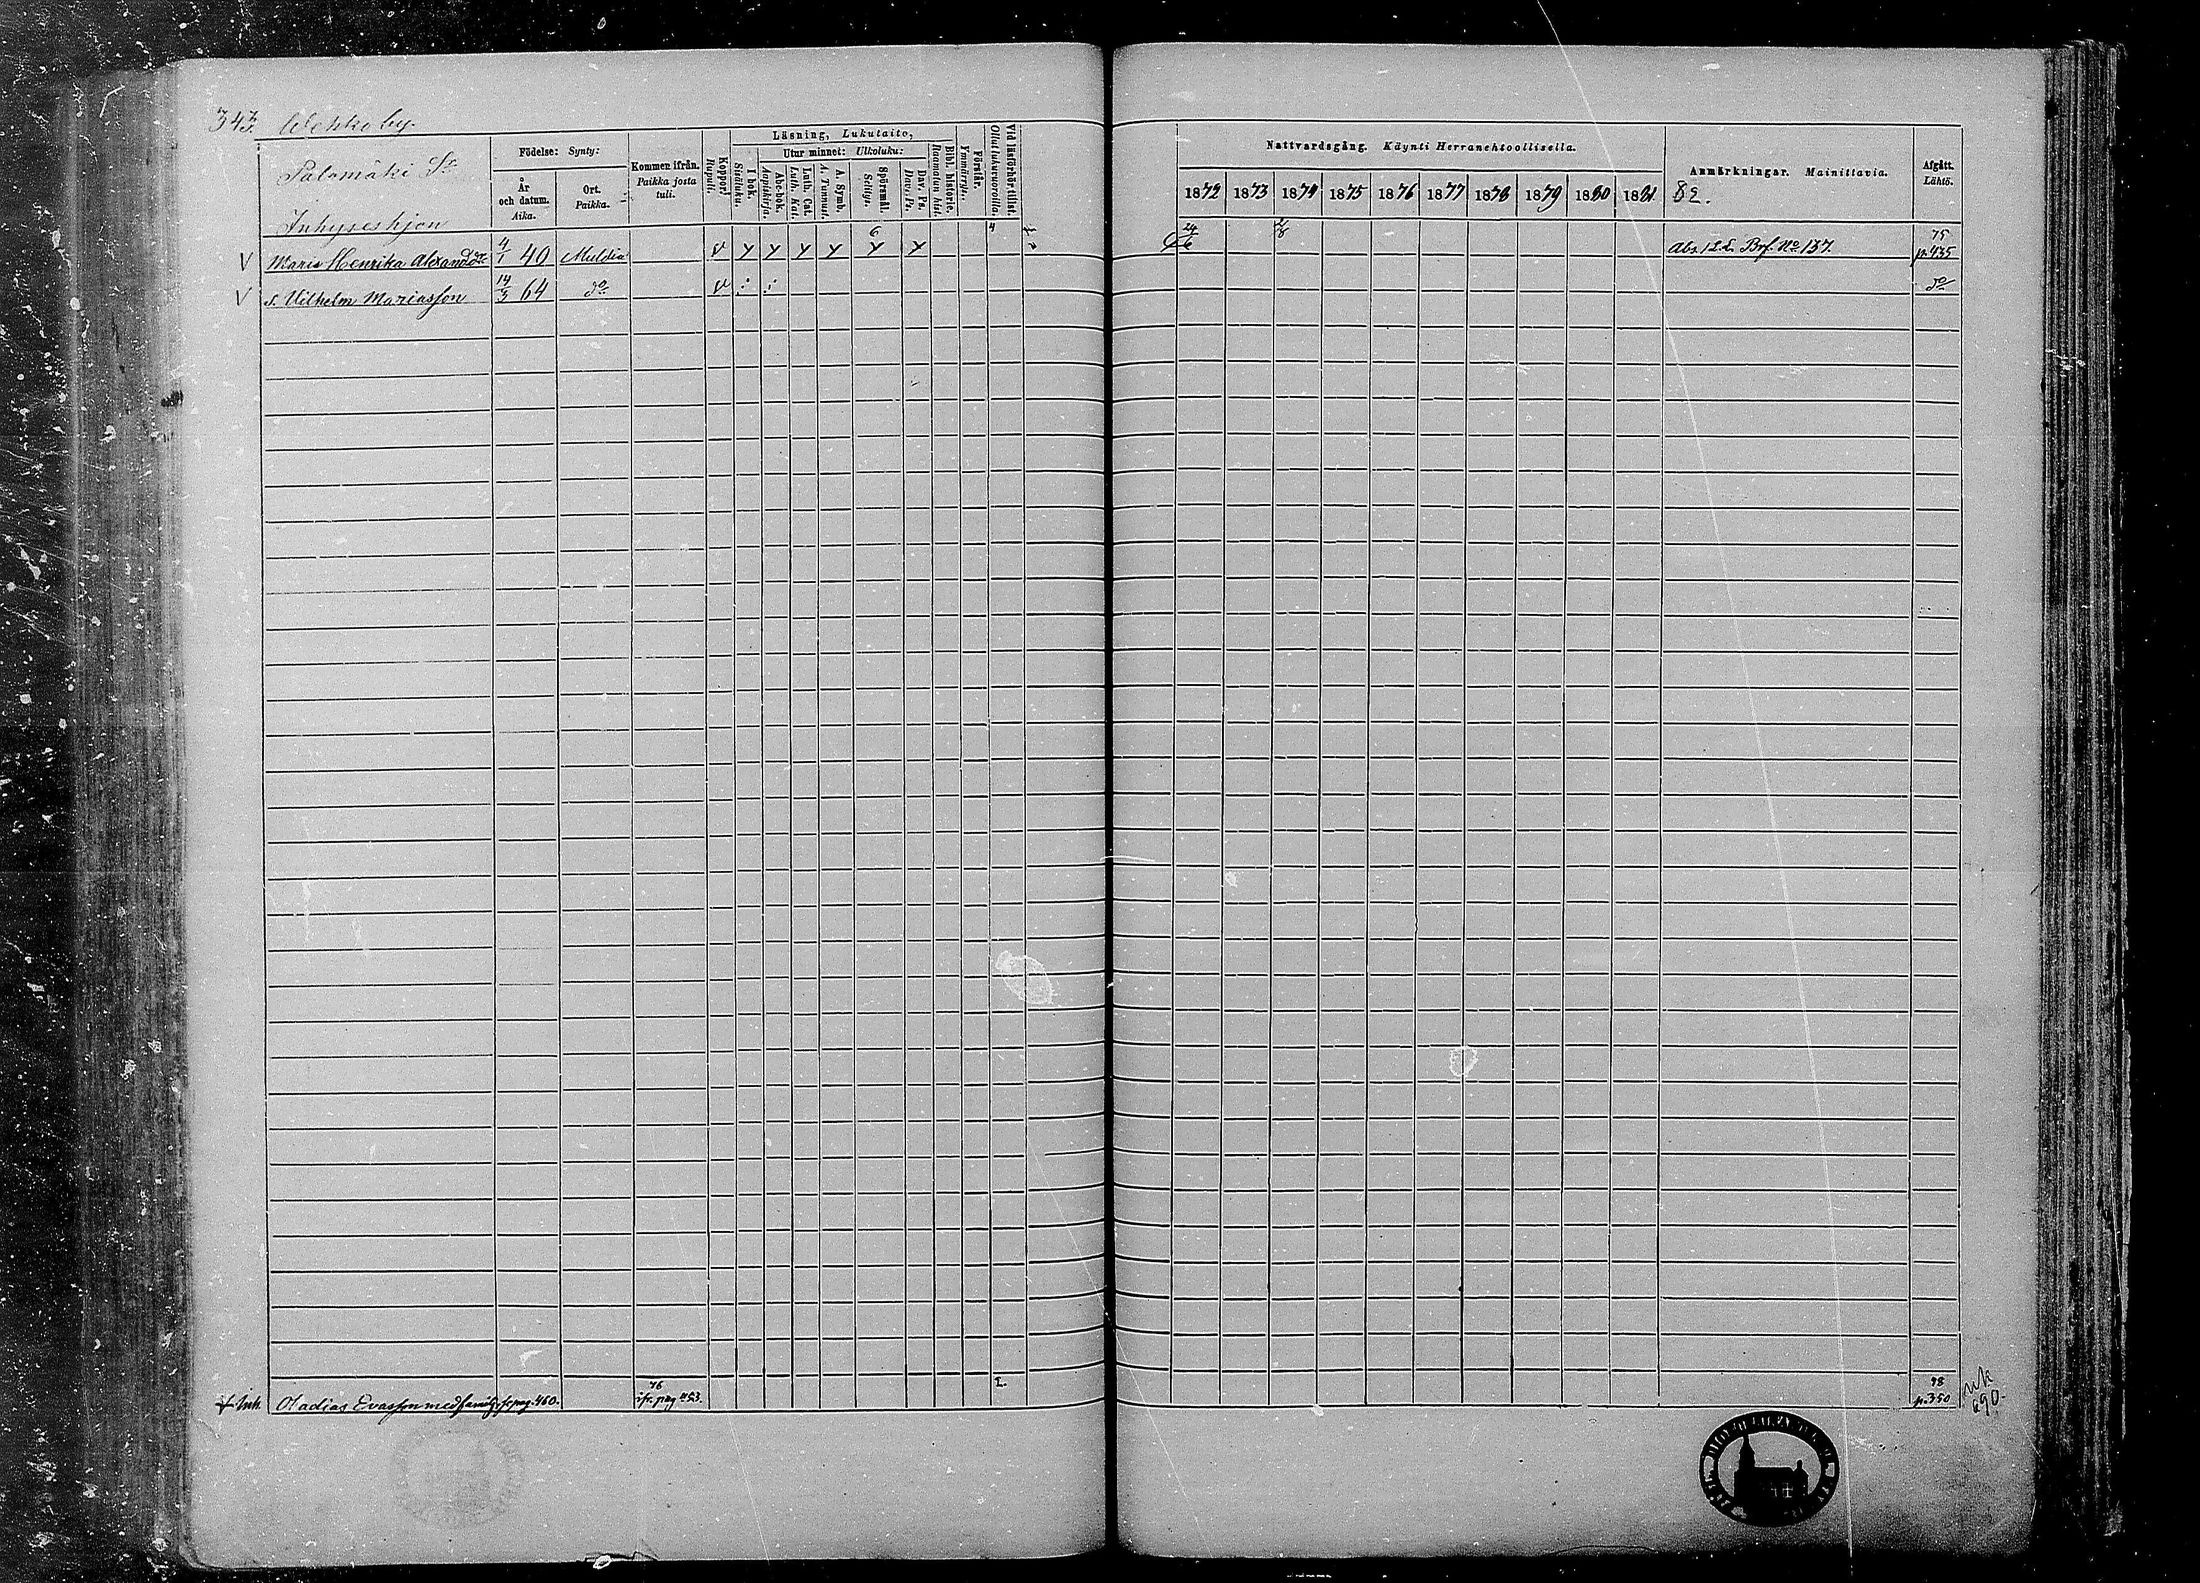 343. Wehkoby.
Salomäki Sr
Inhyseshjon
Födelse: Synty:
År och datum. Aika.
Ort. Paikka.
Kommen ifrån. Paikka josta tuli.
Koppor. Rupuli.
Läsning, Lukutaito,
I bok. Sisäluku.
Utur minnet: Ulkoluku:
Abc-bok. Aapiskirja.
Luth. Cat. Luth. Kat.
A. Symb. A. Tunnust.
Spörsmål. Selitys.
Dav. Ps. Dav. Ps.
Bibl. historie. Raamatun hist.
Förstår. Ymmärrys.
Vid läsförhör tillst. Ollut lukuvuoroilla.
Nattvardsgång. Käynti Herranehtoollisella.
1872 1873 1874 1875 1876 1877 1878 1879 1880 1881
Anmärkningar. Mainittavia.
82.
Afgått. Lähtö.
V Maria Henrika Alexanddr 4/1 40 Muldia v y y y y 6 y y 4 24/6 Abs. 12.L. Brf. No 137. 75 p. 435
V s. Vilhelm Mariasson 14/3 64 do v do
Inh. Evasson med familj, se pag. 460. 76 ifr. pag 453. 78 p. 350
690.